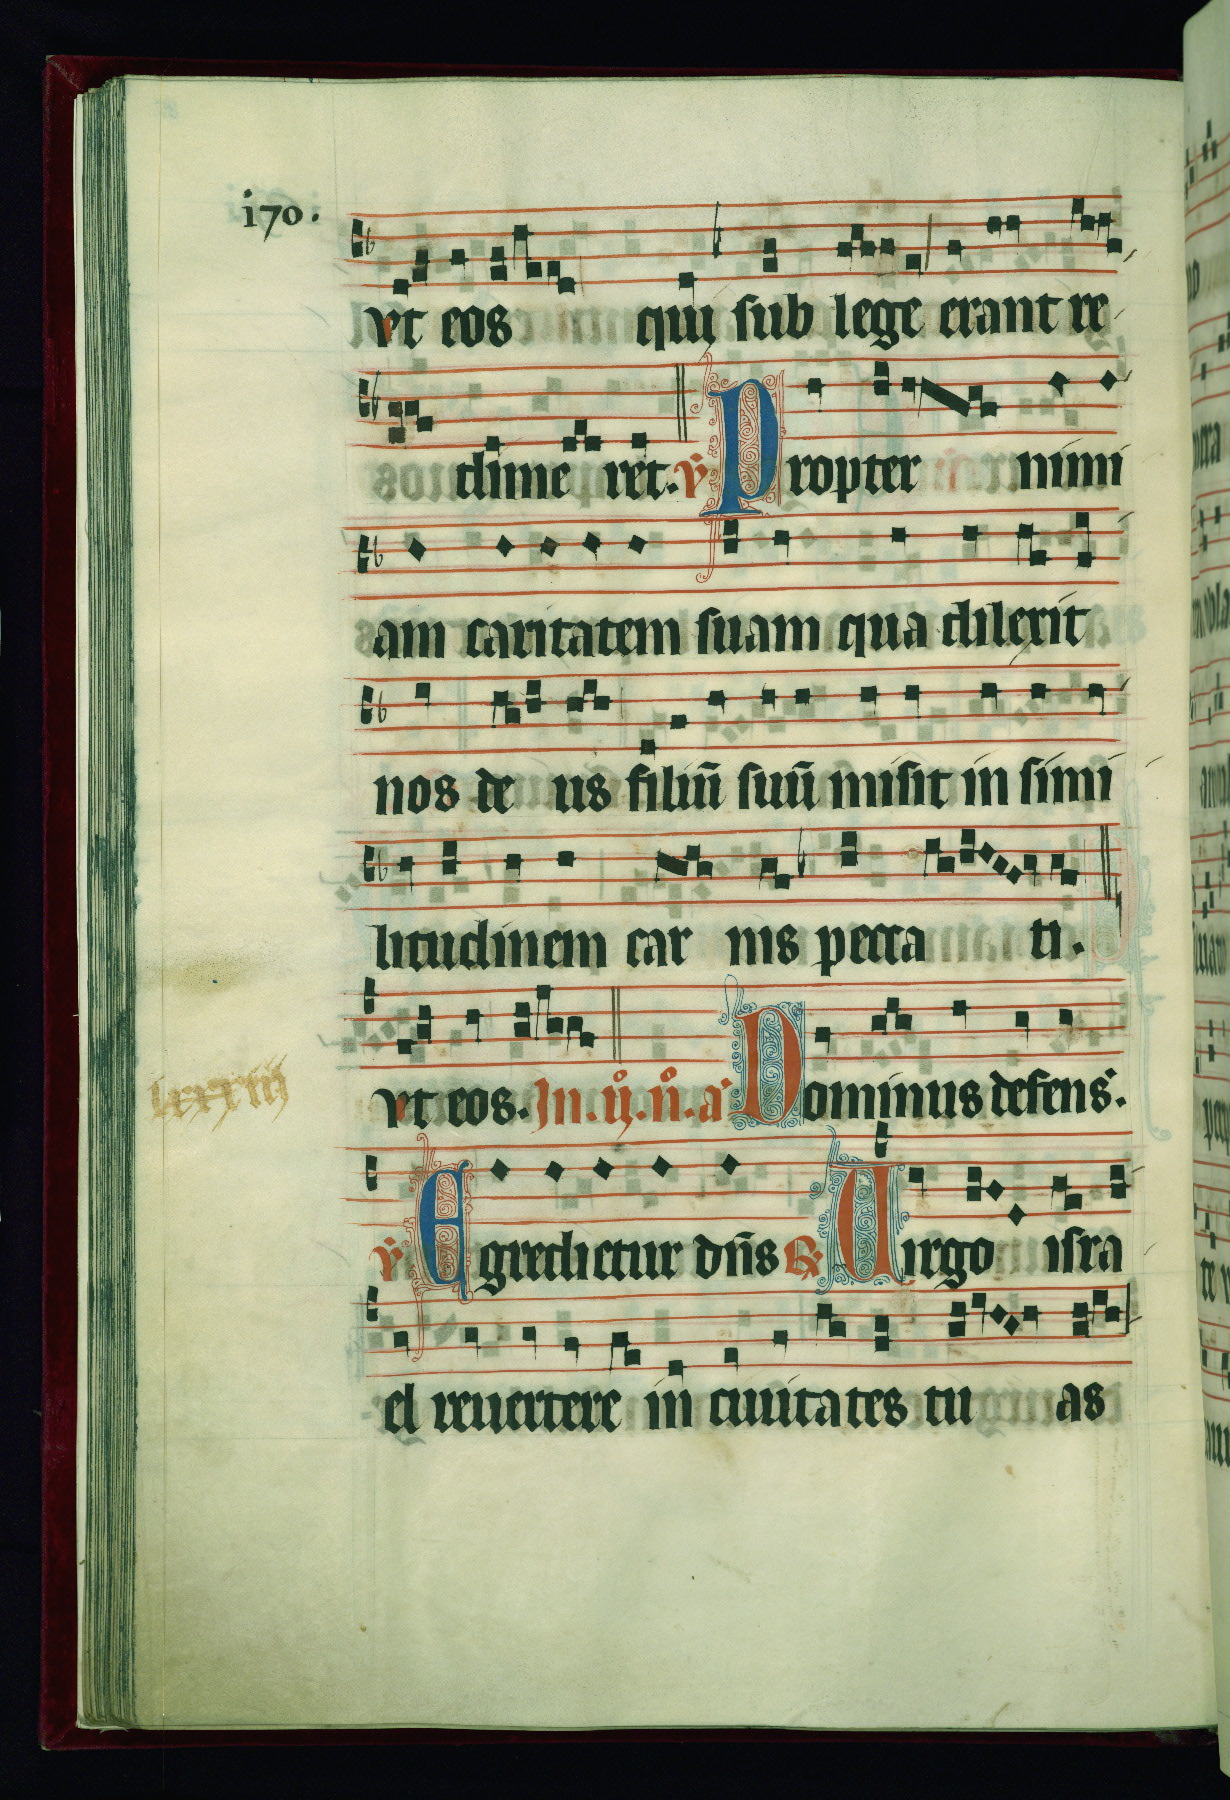 i70.
vt eos qui sub lege erant re
dime ret. ℣ Propter nimi
am caritatem suam qua dilexit
nos de us filiū suū misit in simi
litudinem car nis pecca ti.
lxxxiii
vt eos. In. ii. n. a Dominus defens.
℣ Egredietur dn̄s ℟ Uirgo isra
el reuertere in ciuitates tu as